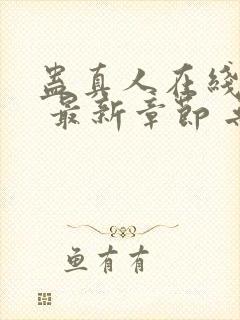 蛊真人在线
最新章节
鱼有有